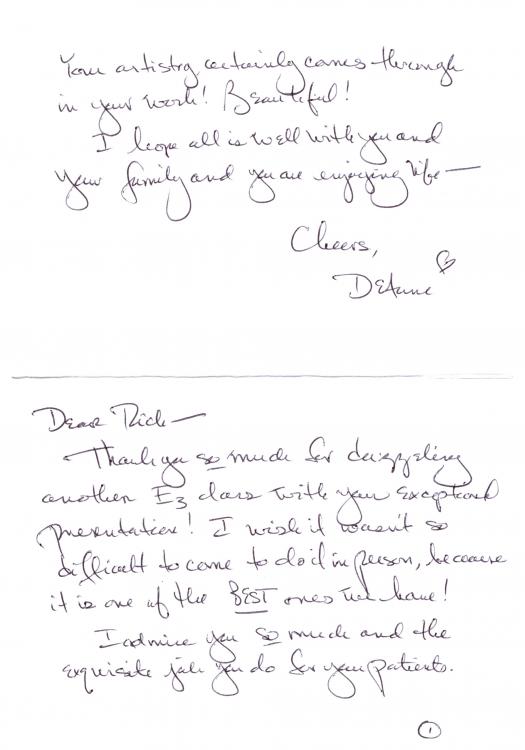 Your artistry certainly comes through
in your work! Beautiful!
I hope all is well with you and
your family and you are enjoying life —
Cheers,
DeAnne ♡
Dear Rich —
Thank you so much for dazzeling
another E3 class with your exceptional
presentation! I wish it wasn't so
difficult to come to do it in person, because
it is one of the BEST ones we have!
I admire you so much and the
exquisite job you do for your patients.
1